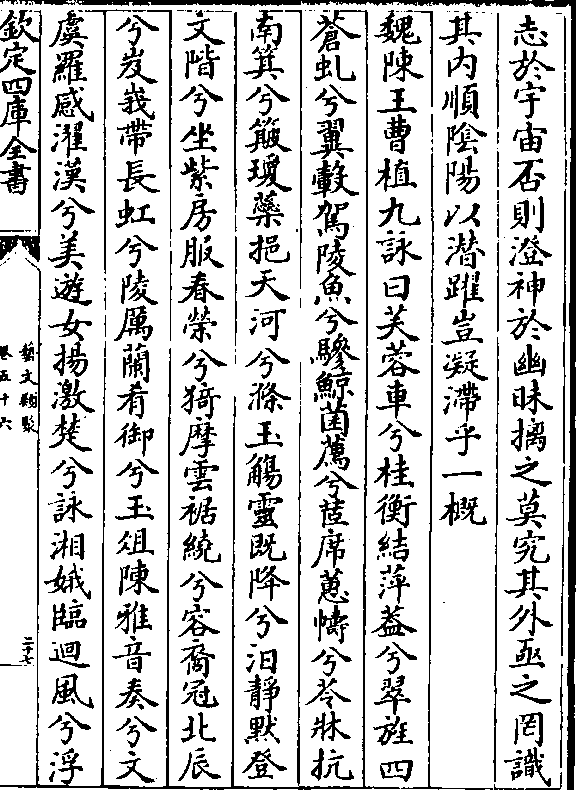 志於宇宙否則澄神於幽昧摛之莫究其外亟之罔識
其内順陰陽以潛躍豈凝滯乎一概
魏陳王曹植九詠曰芙蓉車兮桂衡結萍葢兮翠旌四
蒼虬兮翼轂駕陵魚兮驂鯨菌薦兮茝席蕙幬兮苓牀抗
南箕兮簸瓊蘂挹天河兮滌玉觴靈既降兮汨靜默登
文階兮坐紫房服春榮兮猗摩雲裾繞兮容裔冠北辰
兮岌峩帶長虹兮陵厲蘭肴御兮玉俎陳雅音奏兮文
虞羅感濯漢兮美遊女揚激楚兮詠湘娥臨迴風兮浮
欽定四庫全書
藝文類聚
卷五十六
二十七